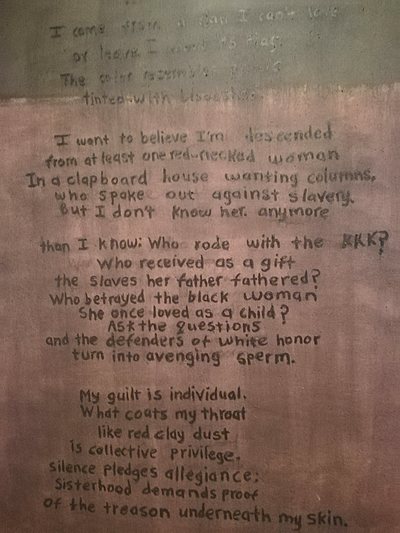 I come from a clan I can't love
or leave. I want to
The color resembles
tinted with
I want to believe I'm descended
from at least one red-necked woman
In a clapboard house wanting columns,
who spoke out against slavery.
But I don't know her. anymore
than I know: Who rode with the KKK?
Who received as a gift
the slaves her father fathered?
Who betrayed the black woman
She once loved as a child?
Ask the questions
and the defenders of white honor
turn into avenging sperm.
My guilt is individual.
What coats my throat
like red clay dust
is collective privilege.
silence pledges allegiance;
Sisterhood demands proof
of the treason underneath my skin.